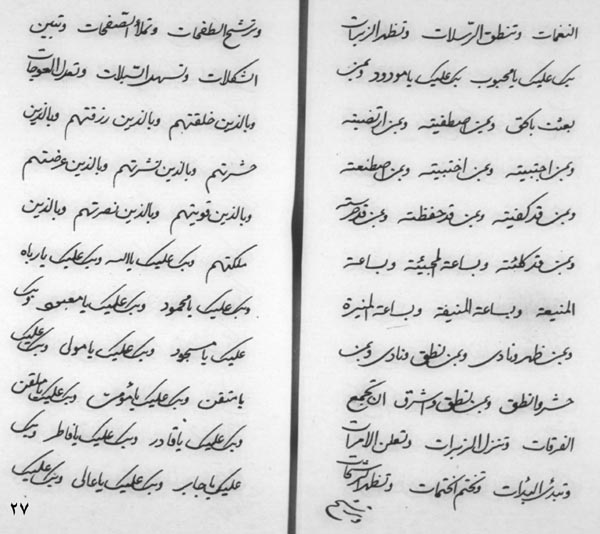 النغمات وتنطق الرسلات وتظهر الزبرات
بک علیک یا محبوب بک علیک یا مودود وبمن
بعثت بالحق وبمن اصطفیته وبمن ارتضیته
وبمن اجتبیته وبمن اختبیته وبمن اصطنعته
وبمن قد کفیته وبمن قد حفظته وبمن قد حرسته
وبمن قد کلئته وبساعة المجیئة وبساعة
المنیعة وبساعة المنیفة وبساعة المنیرة
وبمن ظهر ونادی وبمن نطق ونادی وبمن
حشر وانطق وبمن انطق واشرق ان تجمع
الفرقات وتنزل الزبرات وتعلن الامرات
وتبدئ البدئات وتختم الختمات وتظهر
وترشح
وترشح الطفحات وتملأ الصفحات وتبین
الشکلات وتسهل السبلات وتعدل العوجات
وبالذین خلقتهم وبالذین رزقتهم وبالذین
حشرتهم وبالذین نشرتهم وبالذین عرضتهم
وبالذین قویتهم وبالذین نصرتهم وبالذین
ملکتهم وبک علیک یا الله وبک علیک یا رباه
وبک علیک یا محمود وبک علیک یا معبود وبک
علیک یا مسجود وبک علیک یا مولی وبک علیک
یا متقن وبک علیک یا مؤنس وبک علیک
وبک علیک یا قادر وبک علیک یا فاطر وبک
علیک یا جابر وبک علیک یا عالی وبک علیک
٢٧